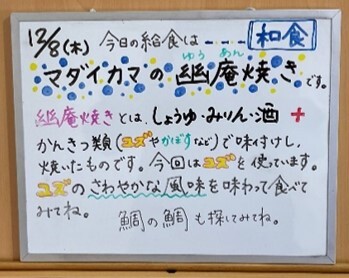 12/8(木) 今日の給食は---- 和食
ゆう あん
マダイカマの 幽庵焼き です。
幽庵焼きとは、しょうゆ・みりん・酒 +
かんきつ類(ユズやかぼすなど)で味付けし、
焼いたものです。今回はユズを使っています。
ユズのさわやかな風味を味わって食べて
みてね。 鯛の鯛も探してみてね。